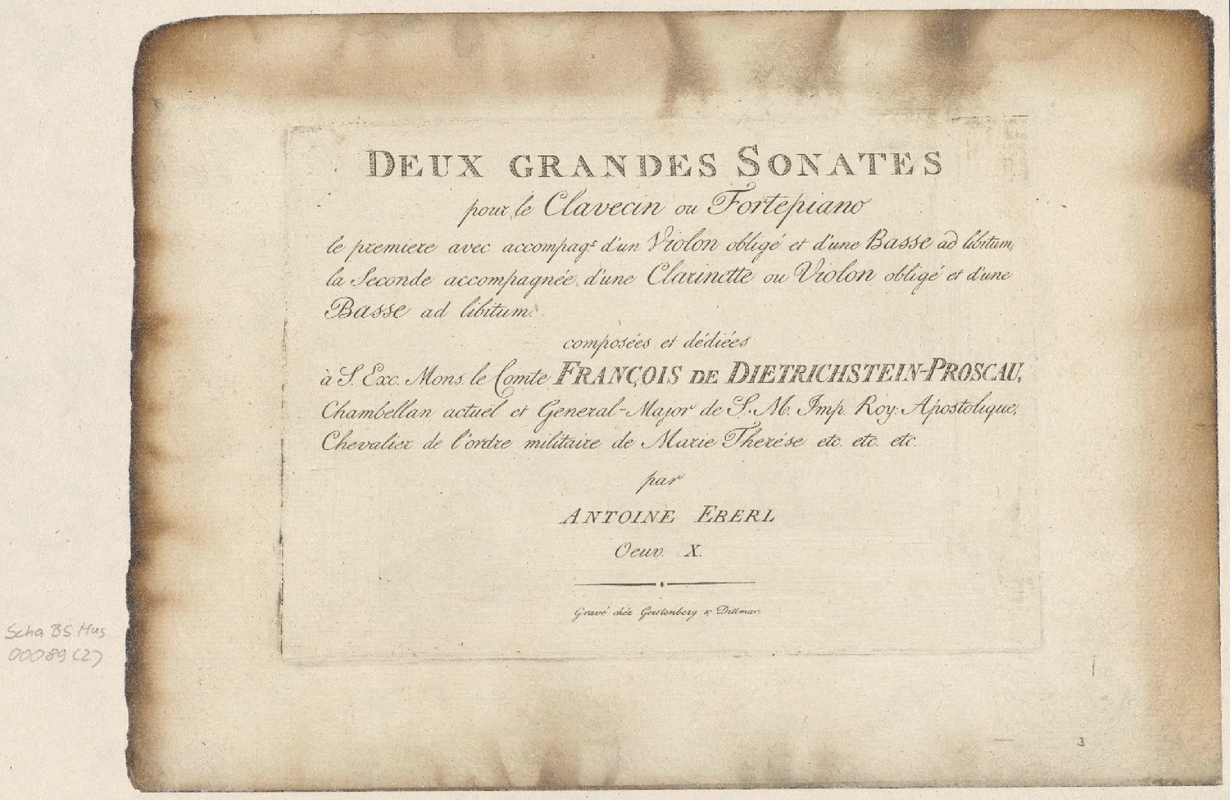 DEUX GRANDES SONATES
pour le Clavecin ou Fortepiano
le premiere avec accompagt d'un Violon obligé et d'une Basse ad libitum,
la Seconde accompagnée d'une Clarinette ou Violon obligé et d'une
Basse ad libitum.
composées et dédiées
à S. Exc. Mons. le Comte FRANÇOIS DE DIETRICHSTEIN-PROSCAU,
Chambellan actuel et General-Major de S. M. Imp. Roy. Apostolique,
Chevalier de l'ordre militaire de Marie Therése etc. etc. etc.
par
ANTOINE EBERL
Oeuv. X.
Gravé chéz Gerstenberg & Dittmar.
Scha BS Mus
00089 (2)
3